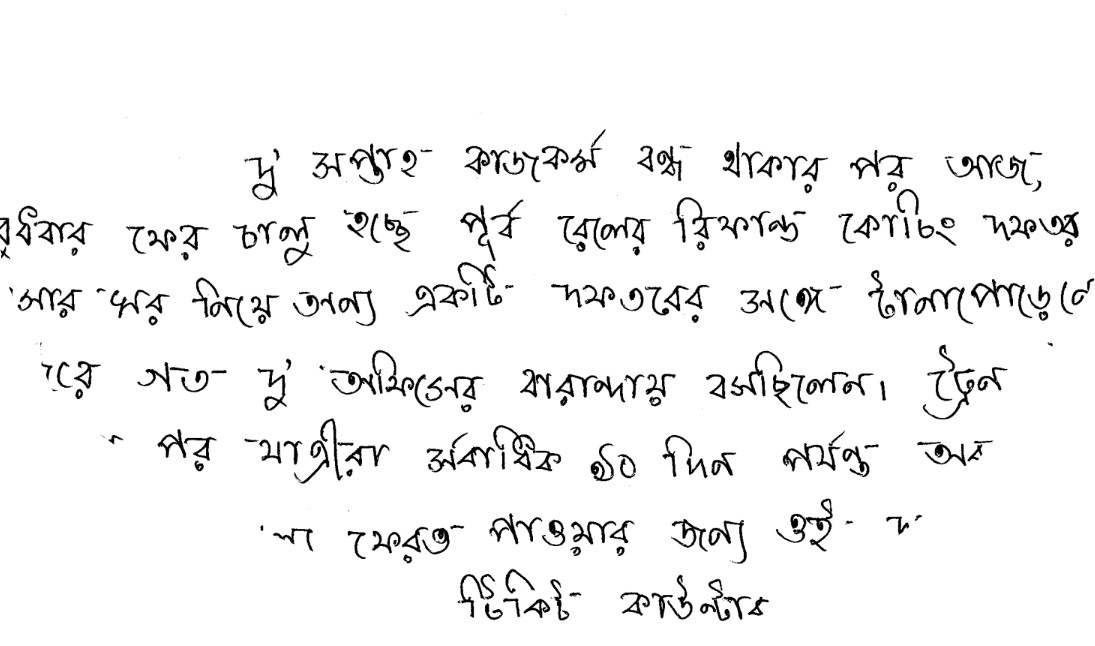 দু' সপ্তাহ কাজকর্ম বন্ধ থাকার পর আজ,
বুধবার ফের চালু হচ্ছে পূর্ব রেলের রিফান্ড কোচিং দফতর
ঘর নিয়ে অন্য একটি দফতরের সঙ্গে টানাপোড়েনে
গত দু' অফিসের বারান্দায় বসছিলেন। ট্রেন
পর যাত্রীরা সর্বাধিক ৯০ দিন পর্যন্ত
ফেরত পাওয়ার জন্য ওই
টিকিট কাউন্টার